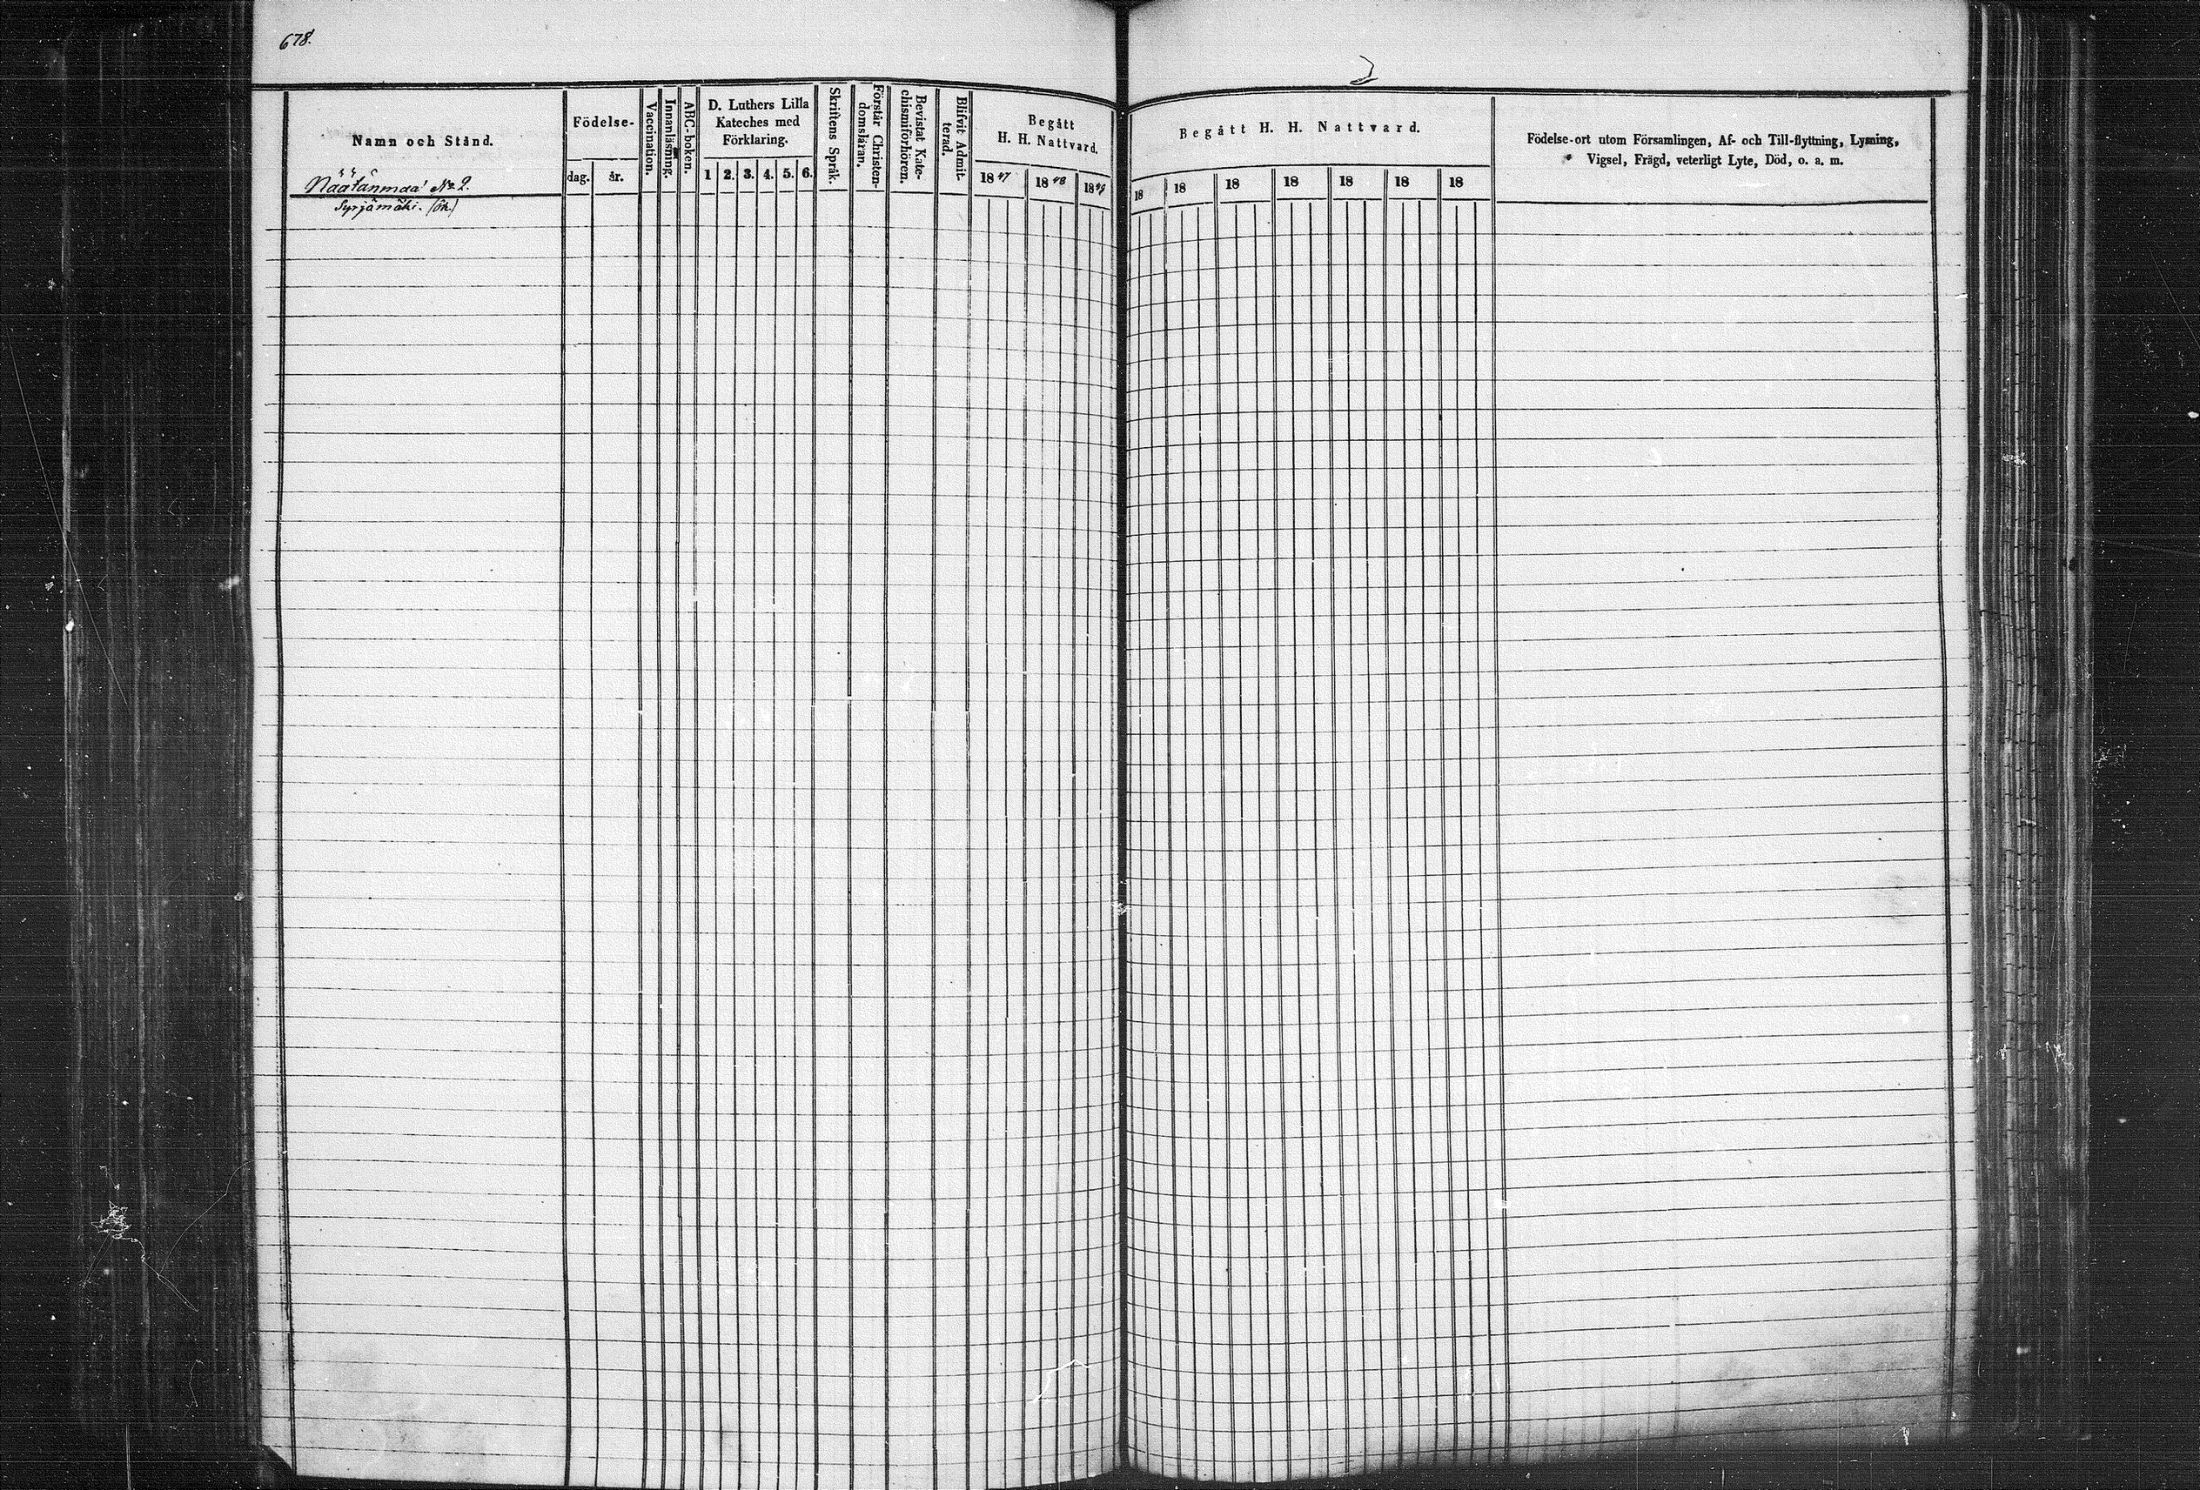 678.
Namn och Stånd.
Näätänmaa No 2.
Syrjämäki. (öh.)
Födelse-
dag.
år.
Vaccination.
Innanläsning.
ABC-boken.
D. Luthers Lilla
Kateches med
Förklaring.
1 2. 3. 4. 5. 6.
Skriftens Språk.
Förstår Christen-
domsläran.
Bevistat Kate-
chismiförhören.
Blifvit Admit-
terad.
Begått
H. H. Nattvard.
1847 1848 1849
Begått H. H. Nattvard.
18 18 18 18 18 18 18
Födelse-ort utom Församlingen, Af- och Till-flyttning, Lysning,
Vigsel, Frägd, veterligt Lyte, Död, o. a. m.